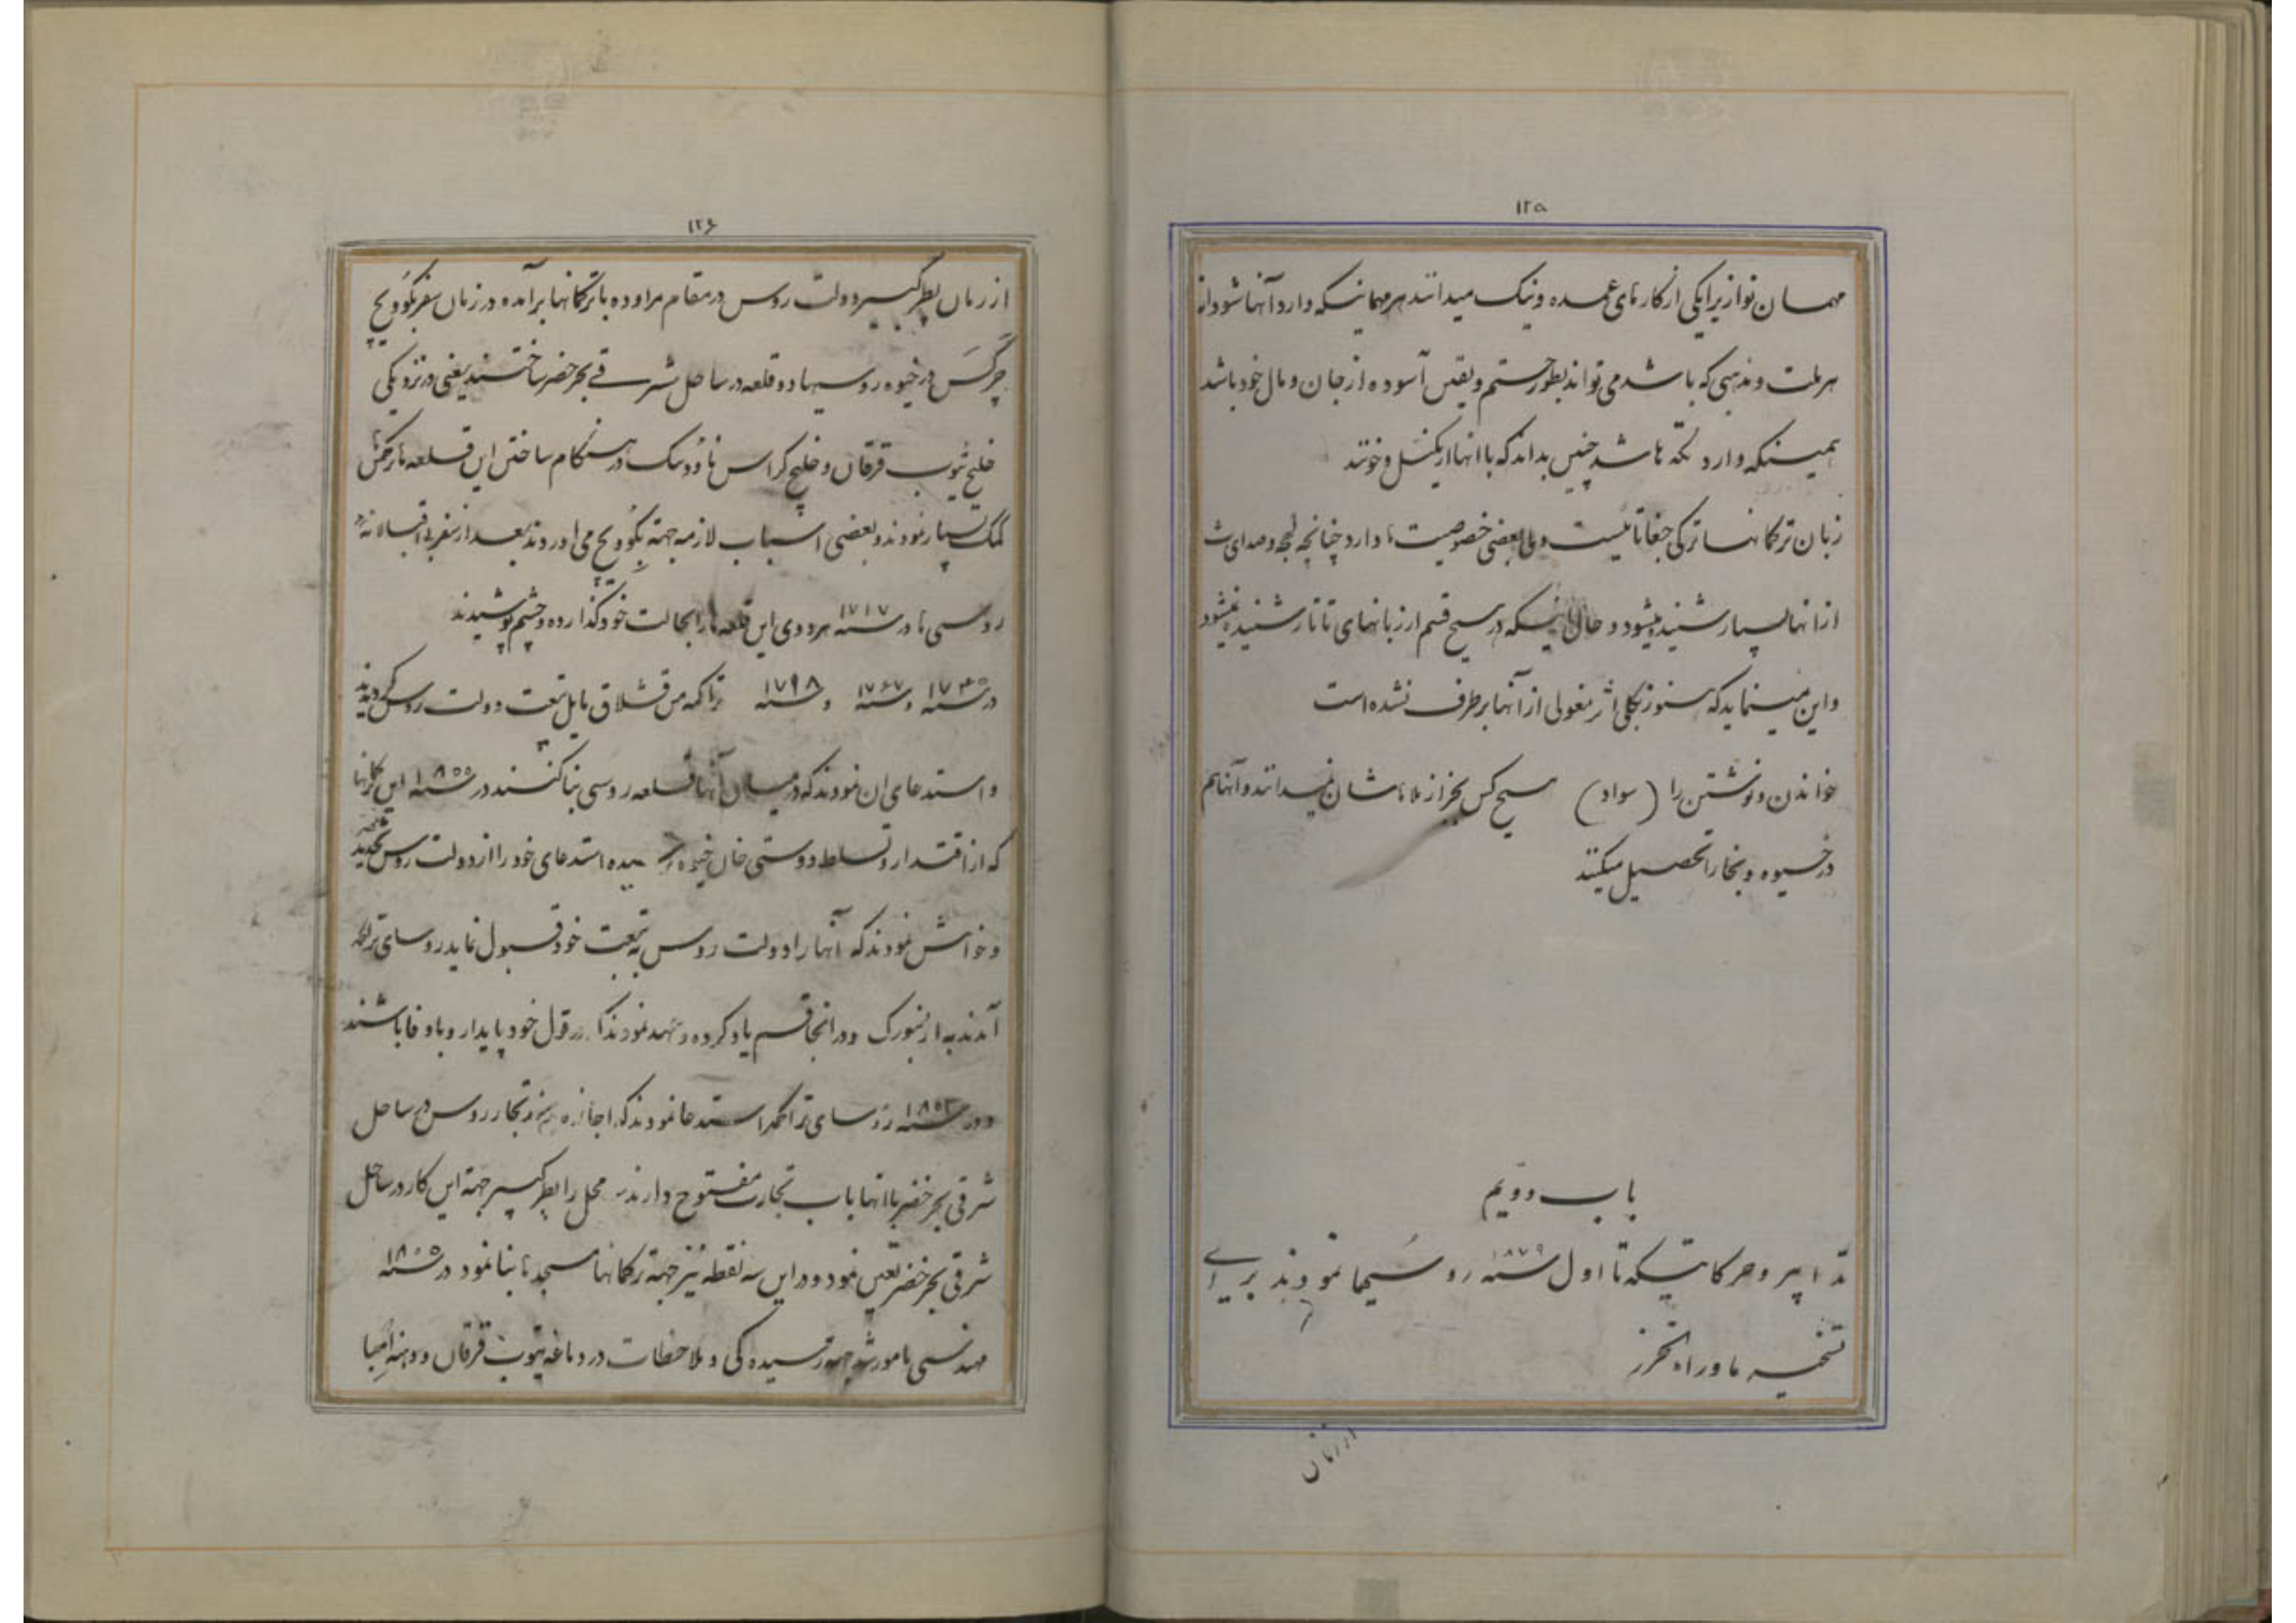 ۱۲۵
مهمان نوازیرا یکی از کارهای عمده و نیک میدانند هر مهمانیکه وارد آنها شود از
هر ملت و مذهبی که باشد می تواند بطور حتم و یقین آسوده از جان و مال خود باشد
همینکه وارد تکه ها شد چنین بداند که با انها از یکنسل و خونند
زبان ترکمانها ترکی جغاتائیست ولی بعضی خصوصیت ها دارد چنانچه لهجه و صدای ث
از انها بسیار شنیده میشود و حال اینکه در هیچ قسم از زبانهای تاتار شنیده نمیشود
و این مینماید که هنوز بکلی اثر مغولی از آنها برطرف نشده است
خواندن و نوشتن را (سواد) هیچ کس بجز از ملاهاشان نمیدانند و آنها هم
در خیوه و بخارا تحصیل میکنند
باب دویم
تدابیر و حرکاتیکه تا اول سنه ۱۸۷۹ روسیها نمودند برای
تسخیر ماوراء الخزر
از زمان
۱۲۶
از زمان پطر کبیر دولت روس در مقام مراوده با ترکمانها برآمده در زمان سفر بکوویچ
چرکس در خیوه روسیها دو قلعه در ساحل شرقی بحر خضر ساختند یعنی در نزدیکی
خلیج تیوب قرقان و خلیج کراس ناوودسک در هنگام ساختن این قلعه ها ترکمن ها
کمک بسیار نمودند و بعضی اسباب لازمه جهة بکوویچ می اوردند بعد از سفر بی اقبالانه
روسی ها در سنه ۱۷۱۷ هر دوی این قلعه ها را بحالت خود گذارده و چشم پوشیدند
در سنه ۱۷۴۵ و سنه ۱۷۶۷ و سنه ۱۷۹۸ تراکمه من قشلاق مایل تبعت دولت روس گردیدند
و استدعای ان نمودند که در میان آنها قلعه روسی بنا کنند در سنه این ترکمانها
که از اقتدار و تسلط دوستی خان خیوه سیده استدعای خود را از دولت روس تجدید
و خواهش نمودند که آنها را دولت روس به تبعت خود قبول نماید روسای تراکمه
آمدند به ارنبورک و در انجا قسم یاد کرده و عهد نمودند که در قول خود پایدار و با وفا باشند
و در سنه روسای تراکمه استدعا نمودند که اجازه تجار روس در ساحل
شرقی بحر خضر با انها باب تجارت مفتوح دارند محل را پطر کبیر جهة این کار در ساحل
شرقی بحر خضر تعیین نمود و در این سه نقطه نیز جهة ترکمانها مسجد ها بنا نمود در سنه
مهندسی مامور شد جهة رسیده کی و ملاحظات در دماغه تیوب قرقان و دهنه امبا